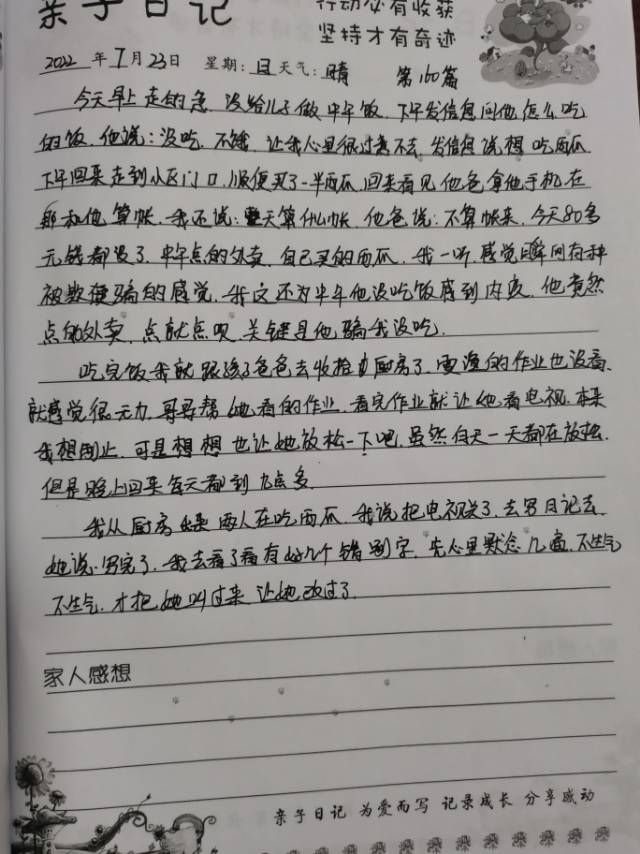 亲子日记
行动必有收获
坚持才有奇迹
2022 年 7 月 23 日 星期：日 天气：晴 第160篇
今天早上走的急，没给儿子做中午饭，下午发信息问他怎么吃
的饭，他说：没吃，不饿，让我心里很过意不去，发信息说想吃西瓜
下午回来走到小区门口，顺便买了一半西瓜，回来看见他爸拿他手机在
那和他算帐，我还说：整天算什么帐，他爸说：不算帐来，今天80多
元钱都没了，中午点的外卖，自己买的西瓜，我一听，感觉瞬间有种
被欺骗的感觉，我这还为中午他没吃饭感到内疚，他竟然
点的外卖，点就点呗，关键是他骗我没吃.
吃完饭我就跟爸爸去收拾厨房了，的作业也没看，
就感觉很无力，哥哥帮她看的作业，看完作业就让他看电视，本来
我想制止，可是想想也让她放松一下吧，虽然白天一天都在放松，
但是晚上回来每天都到九点多
我从厨房出来两人在吃西瓜，我说把电视关了，去写日记去
她说：写完了，我去看了看有好几个错别字，先心里默念几遍，不生气
不生气，才把她叫过来，让她改过了.
家人感想
亲子日记 为爱而写 记录成长 分享感动